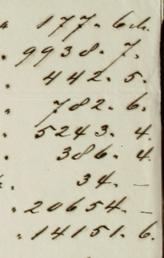 177. 6d.
9938. 7.
442. 5.
782. 6.
5243. 4.
386. 4.
34. —
20654. —
14151. 6.